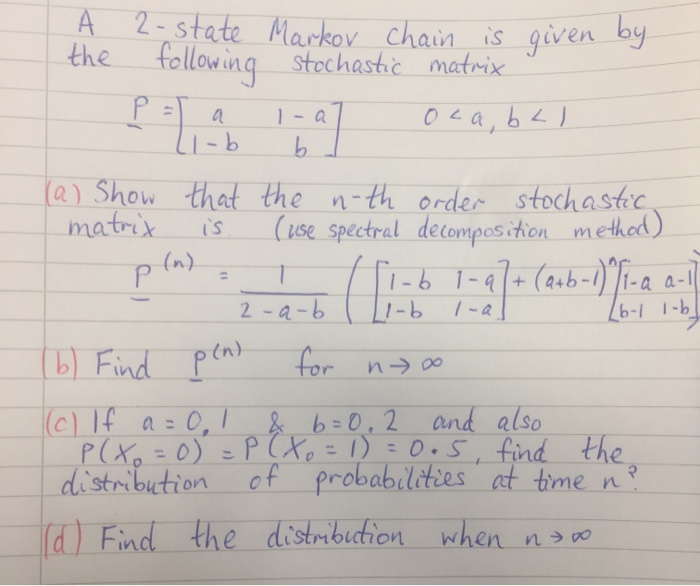 A 2-state Markov chain is given by
the following stochastic matrix
P = [ a 1-a
1-b b ] 0 < a, b < 1
(a) Show that the n-th order stochastic
matrix is (use spectral decomposition method)
P^(n) = 1/(2-a-b) ( [ 1-b 1-a
1-b 1-a ] + (a+b-1)^n [ 1-a a-1
b-1 1-b ]
(b) Find P^(n) for n → ∞
(c) If a = 0,1 & b = 0,2 and also
P(X₀ = 0) = P(X₀ = 1) = 0.5, find the
distribution of probabilities at time n?
(d) Find the distribution when n → ∞